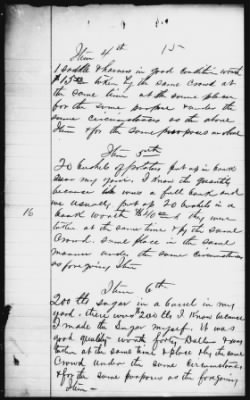 Item 4th 15
1 saddle & harness in good condition worth
$15.00 taken by the same crowd at
the same time at the same place
for the same purpose & under the
same circumstances as the above
Item & for the same purposes as above
Item 5th
20 bushels of potatoes put up in bank
near my yard. I know the quantity
because was a full bank and
we usually put up 20 bushels in a
bank worth and they were
taken at the same time & by the same
Crowd. same place in the same
manner under the same circumstances
as foregoing Item
16
Item 6th
200 lbs sugar in a barrel in my
yard. there was 200 lbs I know because
I made the Sugar myself. it was
good quality worth forty Dollars & was
taken at the same time & place & by the same
Crowd under the same circumstances
& for the same purposes as the foregoing
Item —